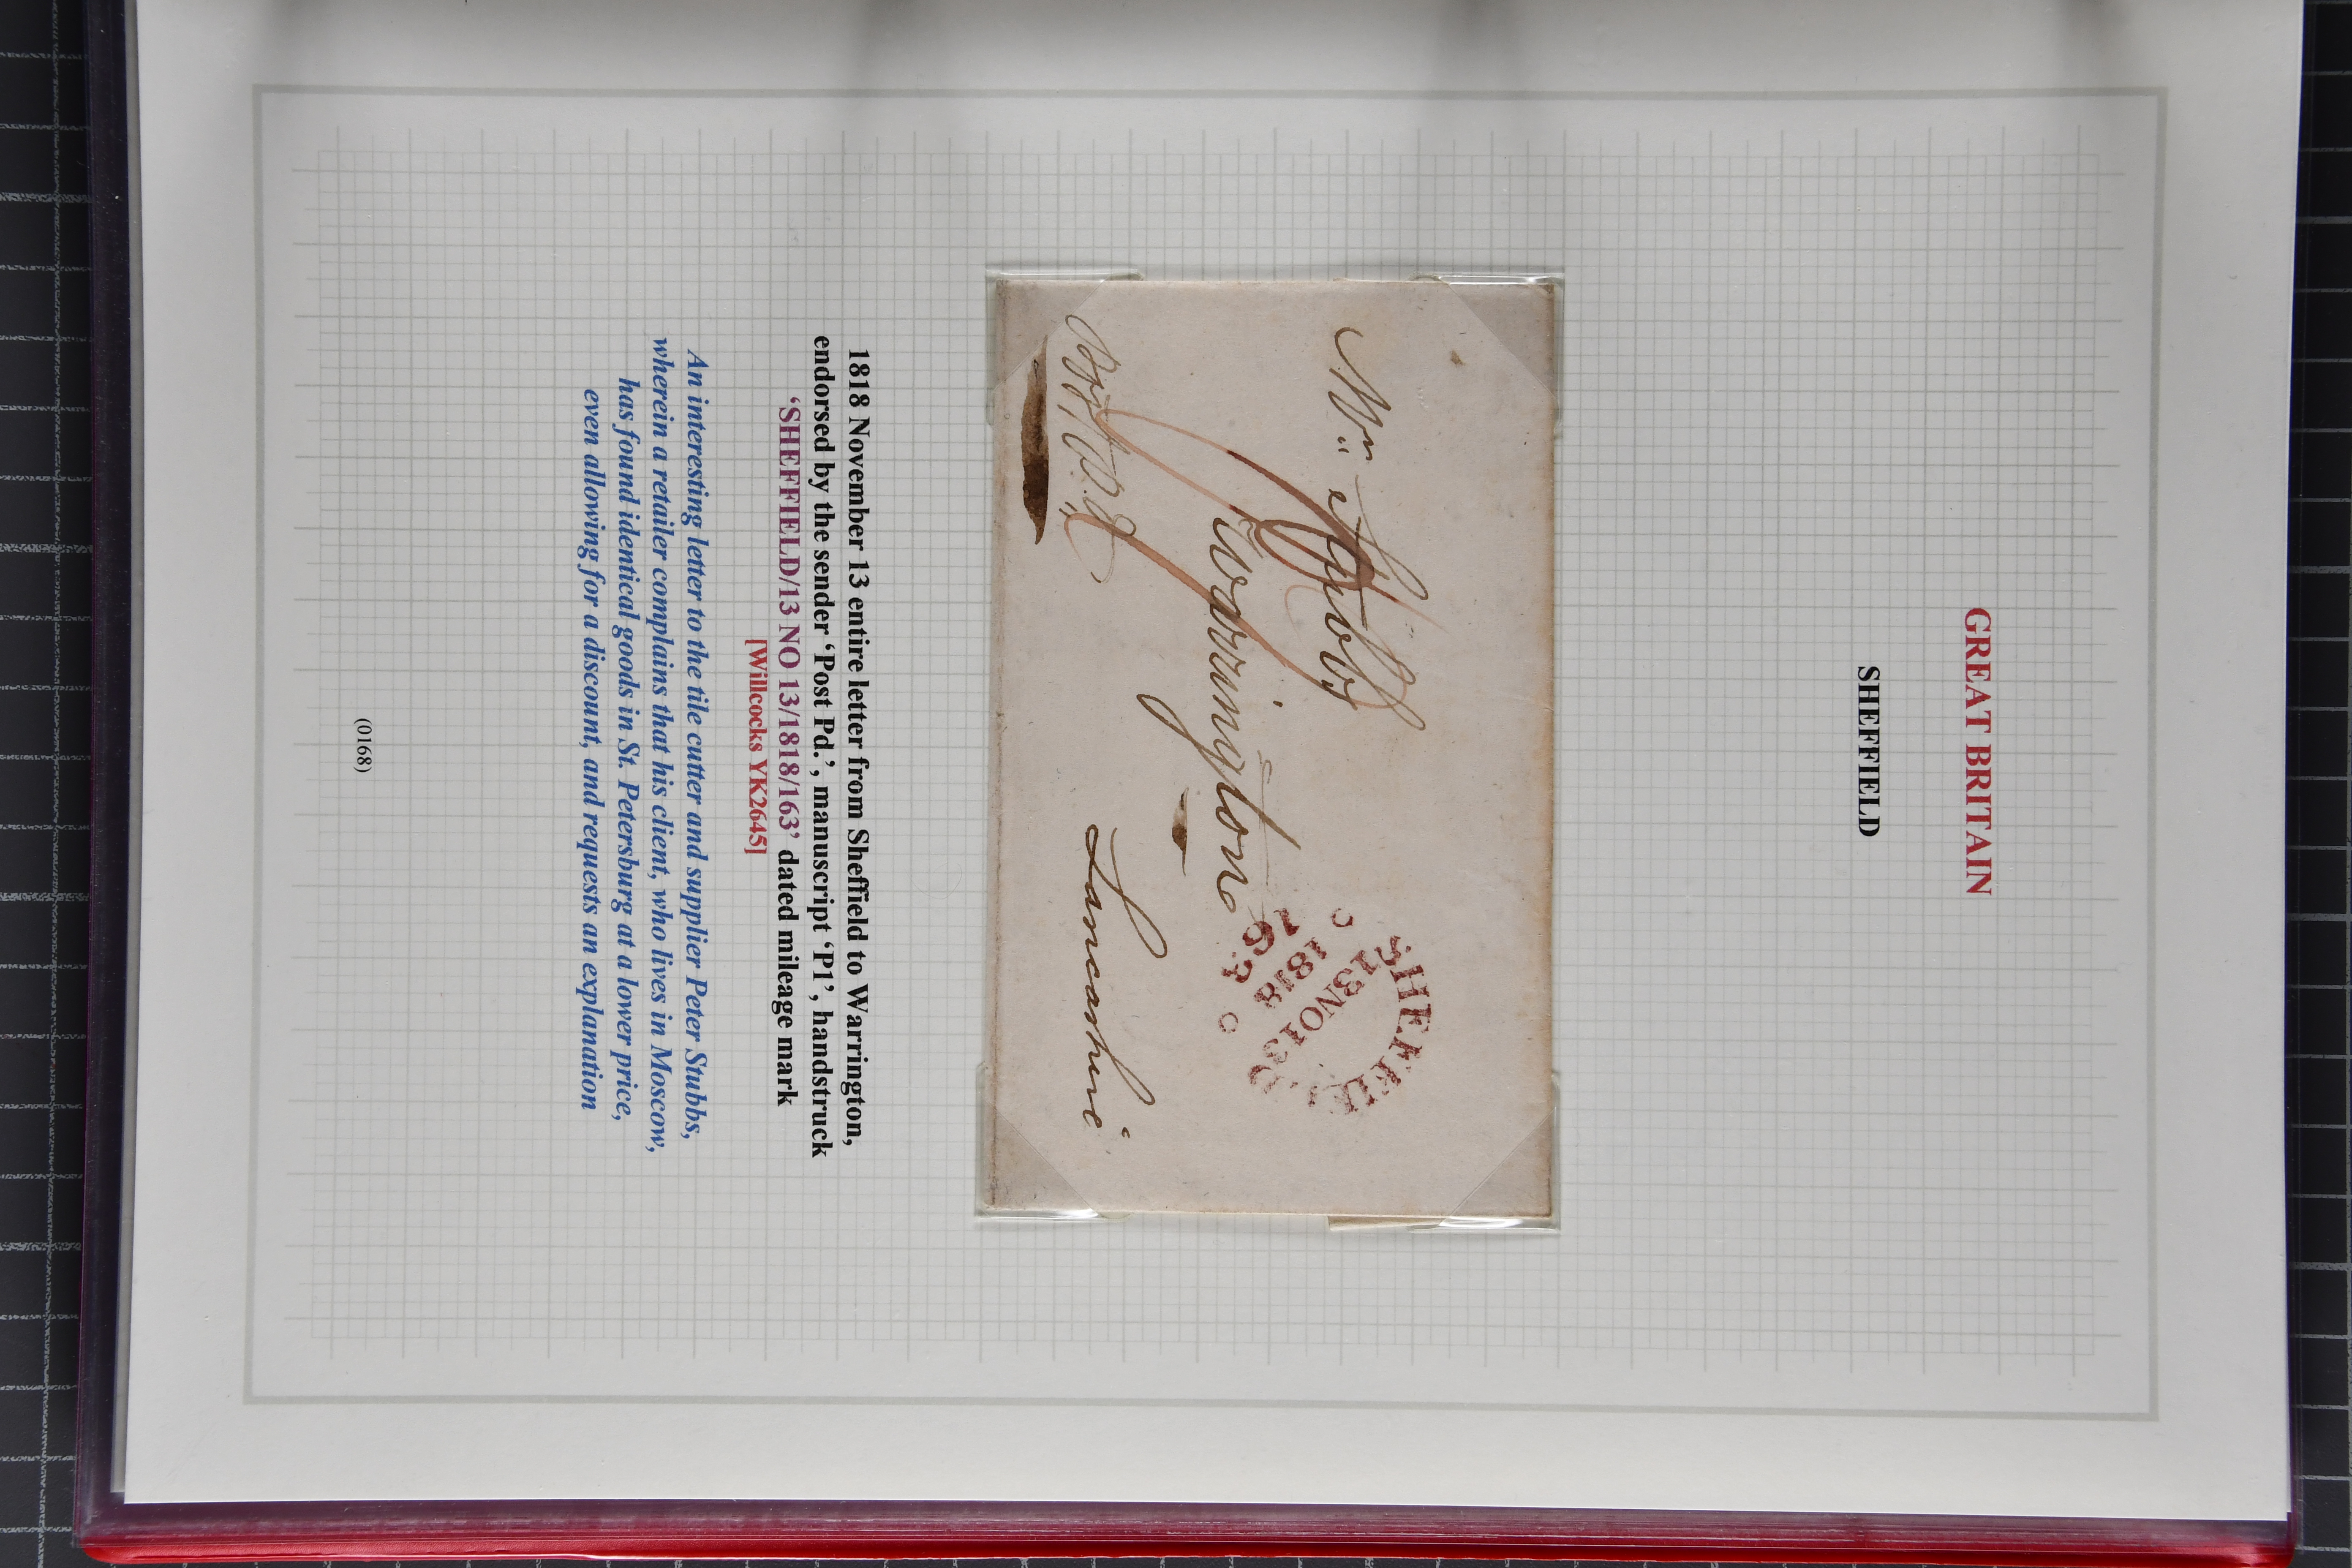 GREAT BRITAIN
SHEFFIELD
Wm Stubbs
Warrington
Lancashire
Post Pd.
SHEFFIELD
13 NO 13
1818
163
1818 November 13 entire letter from Sheffield to Warrington,
endorsed by the sender ‘Post Pd.’, manuscript ‘P1’, handstruck
‘SHEFFIELD/13 NO 13/1818/163’ dated mileage mark
[Willcocks YK2645]
An interesting letter to the tile cutter and supplier Peter Stubbs,
wherein a retailer complains that his client, who lives in Moscow,
has found identical goods in St. Petersburg at a lower price,
even allowing for a discount, and requests an explanation
(0168)